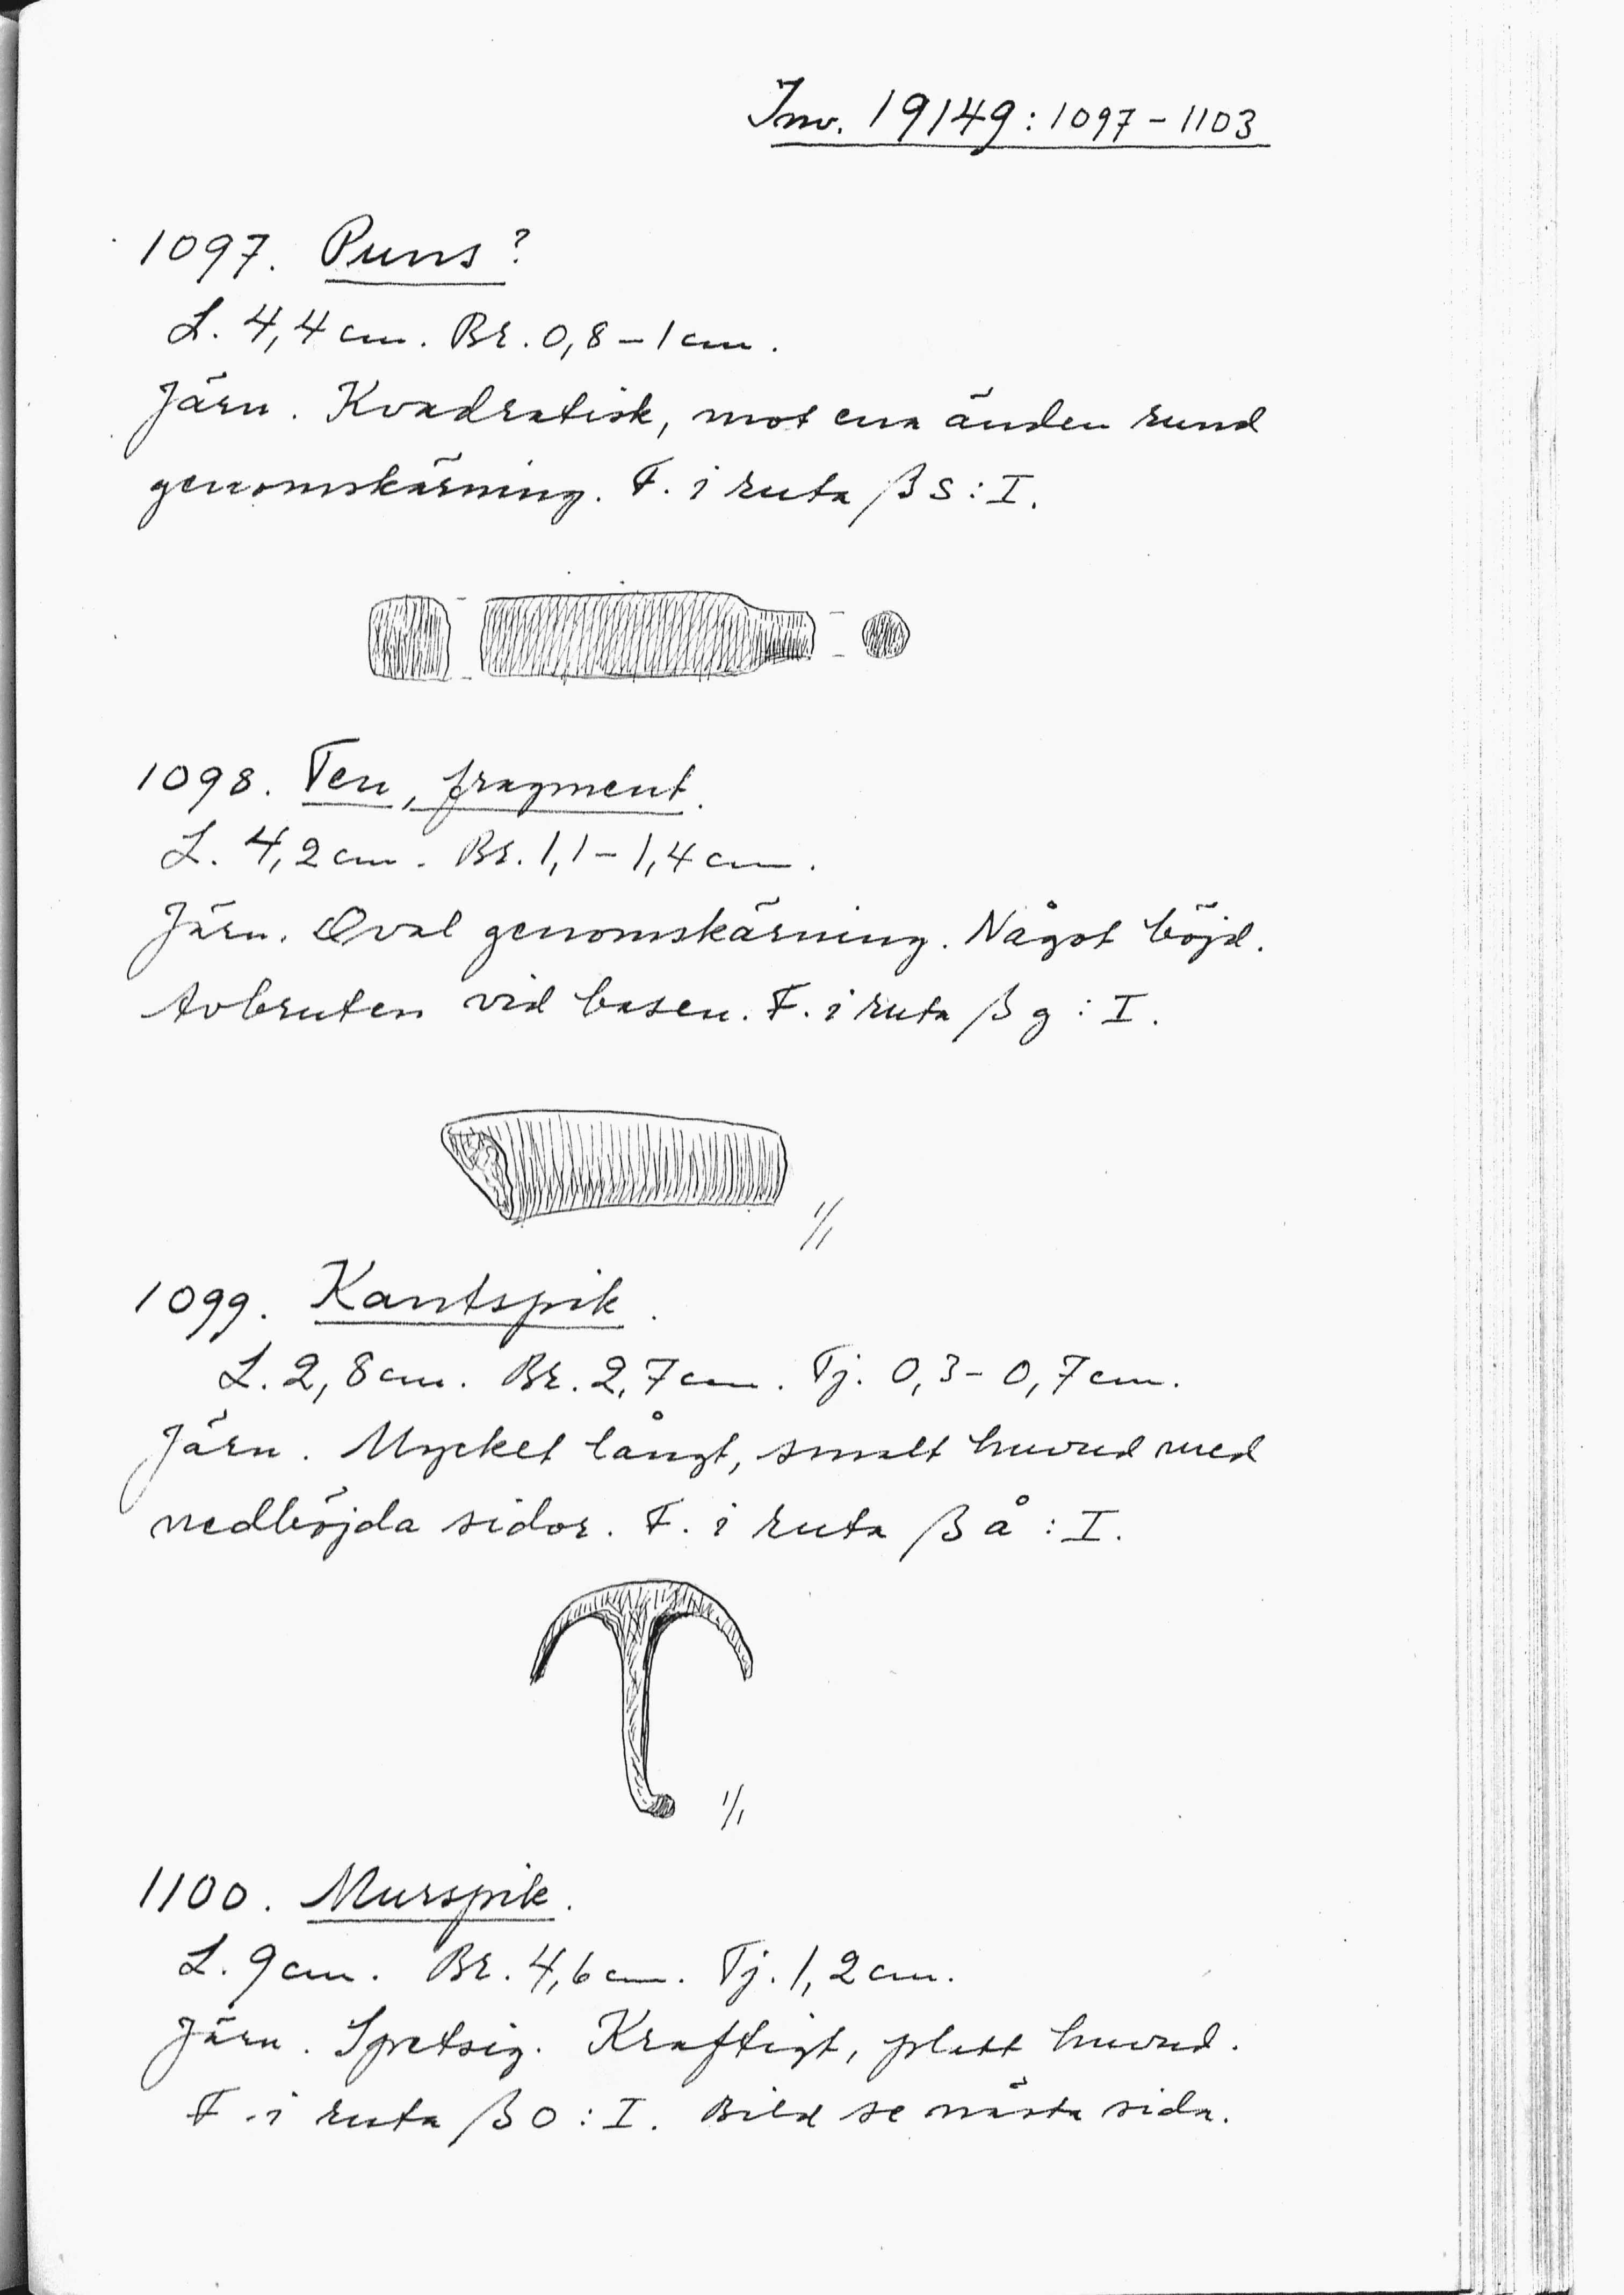 Inv. 19149:1097-1103
1097. Puns?
L. 4,4 cm. Br. 0,8-1 cm.
Järn. Kvadratisk, mot ena änden rund
genomskärning. F. i ruta β s:I.
1098. Ten, fragment.
L. 4,2 cm. Br. 1,1-1,4 cm.
Järn. Oval genomskärning. Något böjd.
Avbruten vid basen. F. i ruta β g:I.
1/1
1099. Kantspik.
L. 2,8 cm. Br. 2,7 cm. Tj. 0,3-0,7 cm.
Järn. Mycket långt, smalt huvud med
nedböjda sidor. F. i ruta β å:I.
1/1
1100. Murspik.
L. 9 cm. Br. 4,6 cm. Tj. 1,2 cm.
Järn. Spetsig. Kraftigt, platt huvud.
F. i ruta β o:I. Bild se nästa sida.